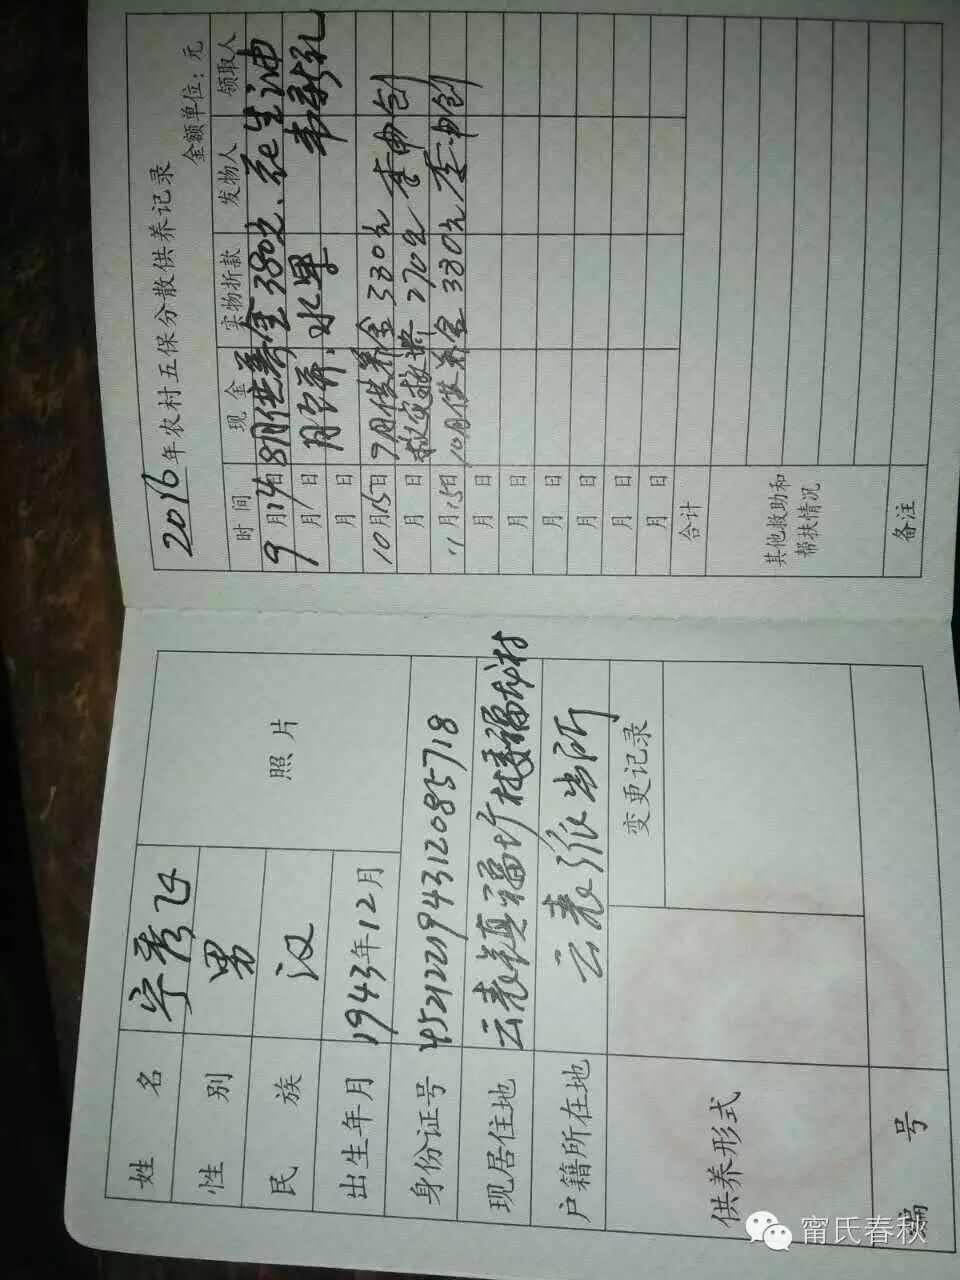 姓名 宁秀飞 照片
性别 男
民族 汉
出生年月 1943年12月
身份证号 452122194312085718
现居住地 云表镇福圩村委福龙村
户籍所在地 云表派出所
供养形式 变更记录
编号
2016年农村五保分散供养记录
金额单位：元
时间 现金 实物折款 发物人 领取人
9月14日 8月供养金380元、花生油
月 日 月饼、水果
月 日
10月15日 9月供养金 330元
月 日 救灾救济 270元 李申创
11月15日 10月供养金 330元 李申创
月 日
月 日
月 日
月 日
月 日
合计
其他救助和
帮扶情况
备注
甯氏春秋